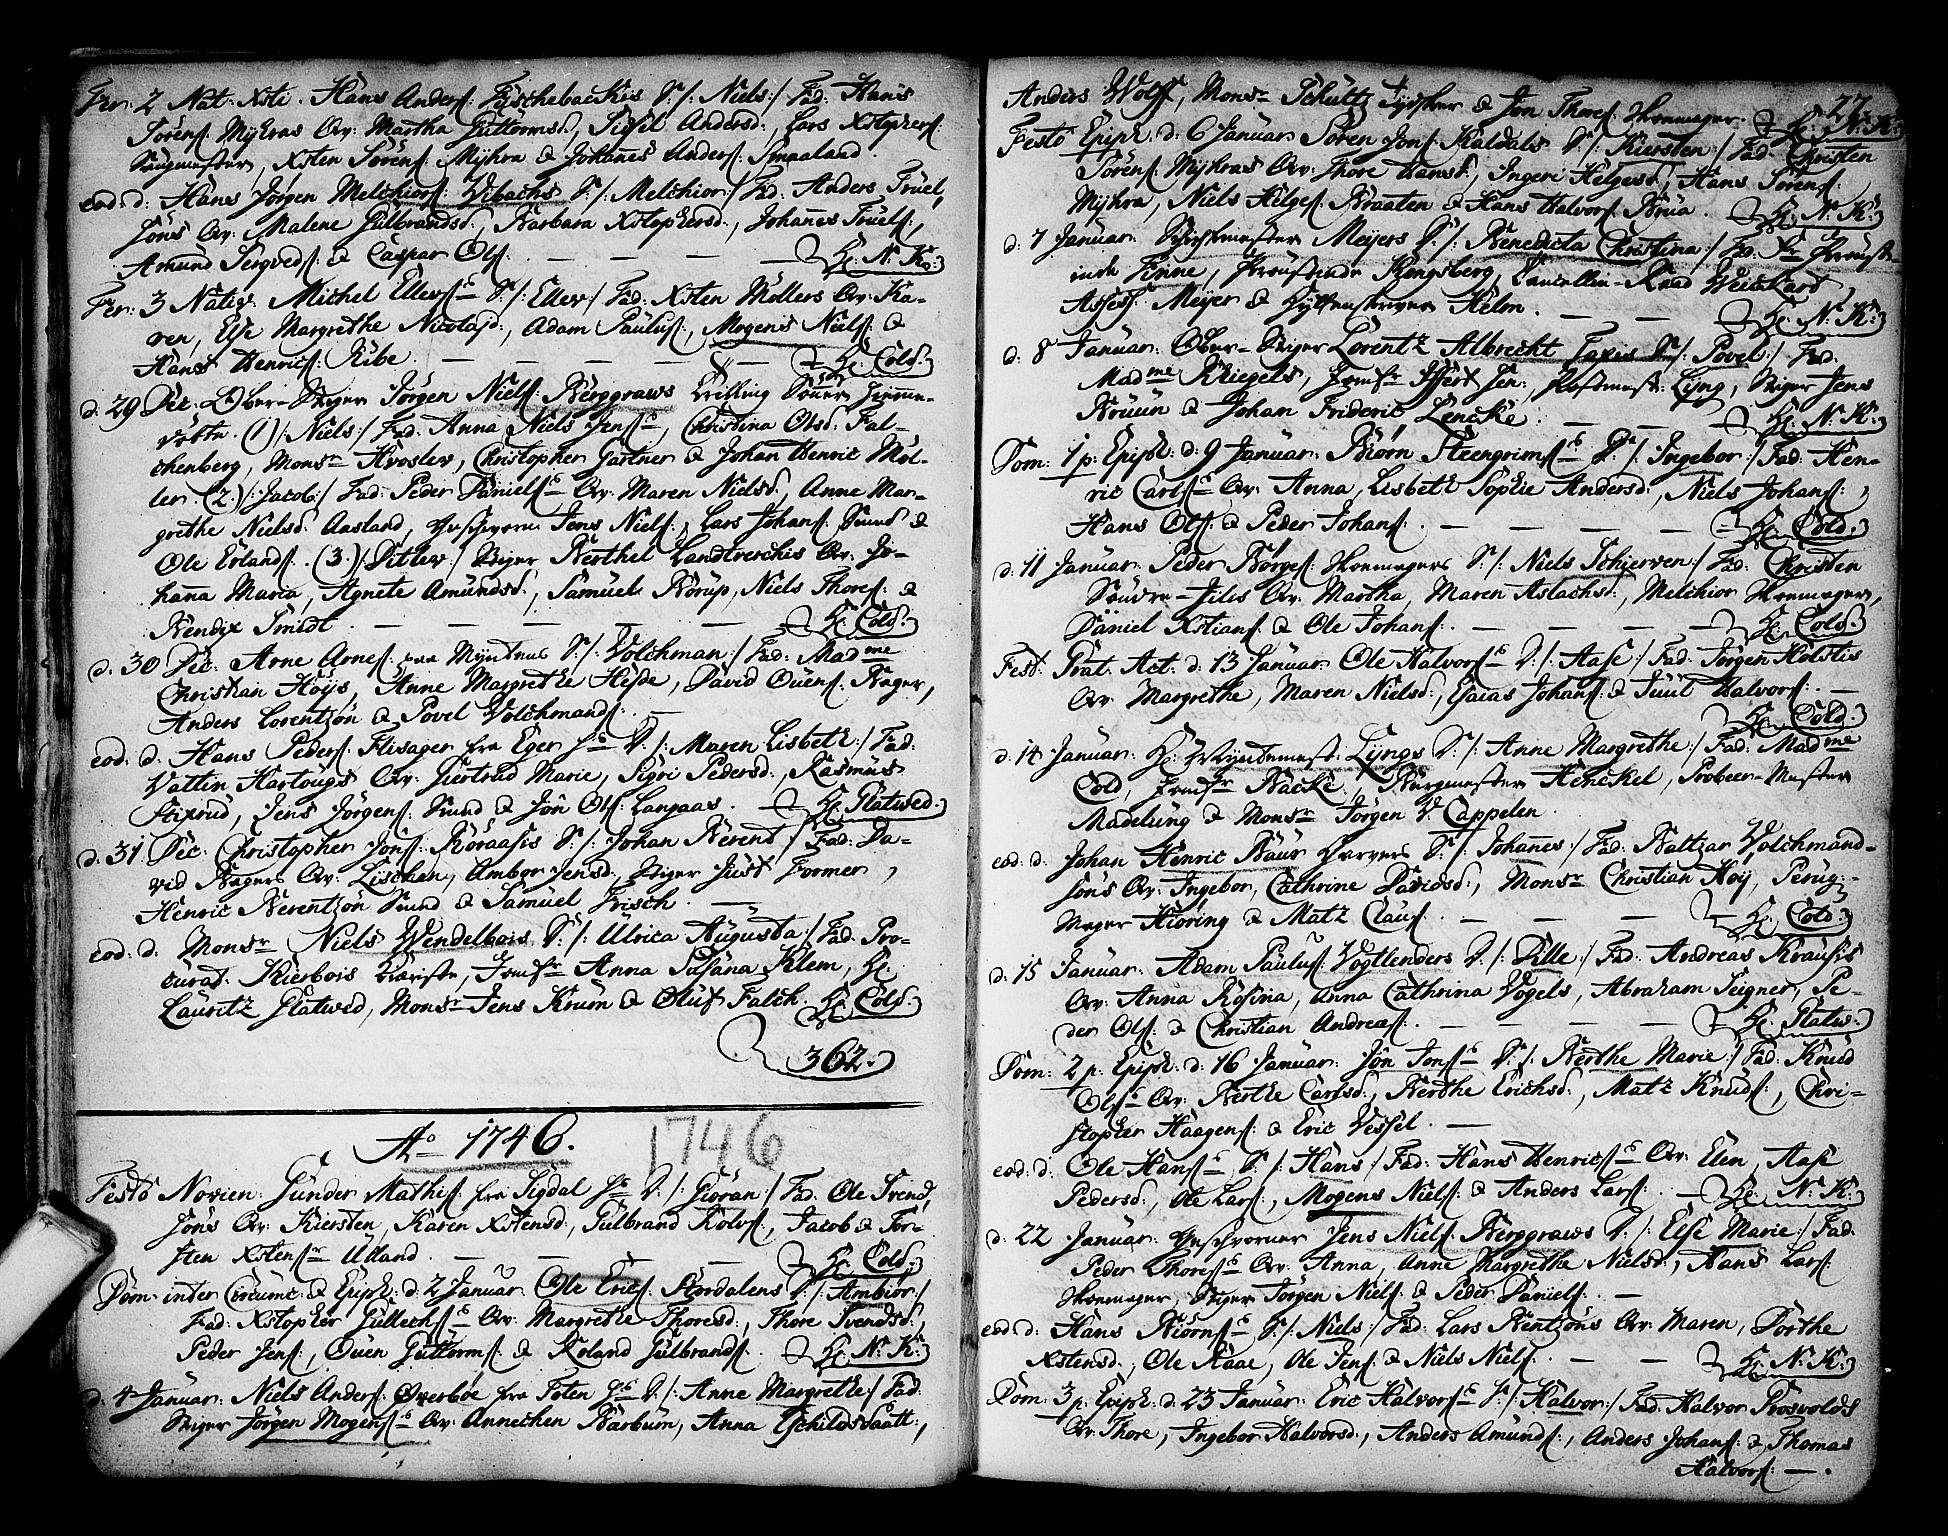 Fer: 2 Nat: Xsti. Hans Anders: Fyschebachis S:/: Niels:/ Fad: Hans
Sörens: Myhras Qv: Martha Guttormsd:, Sidsel Andersd:, Lars Xstophers:
Xsten Sörens: Myhra & Johannes Anders: Smaaland.
eod: d: Hans Jørgen Melchiors: Vibachs S:/: Melchior:/ Fad: Anders Truel,
söns Qv: Malene Gulbrandsd:, Barbara Xstophersd:, Johannes Truels:,
Amund Sergveds: & Caspar Ols: — — — — Hr: N: K:
Fer: 3 Nativ: Michel Ellevs: S:/: Ellev:/ Fad: Xsten Møllers Qv: Ka-
ren, Else Margrethe Nicolajsd:, Adam Pauls:, Mogens Niels: &
Hans Henrics: Ribe — — — Hr: Cold:
d: 29 Dec: Ober-Stiger Jørgen Niels: Berggraws Trilling Sönner Hiemme-
døbte. (1)/: Niels:/ Fad: Anna Niels Jens:, Christina Olsd: Fal-
chenberg, Monsr Hvoslev, Christopher Gartner & Johan Henric Møl-
ler (2)/: Jacob:/ Fad: Peder Daniels: Qv: Maren Nielsd:, Anne Mar-
grethe Nielsd: Aasland, Geschworn: Jens Niels:, Lars Johans: Sund &
Ole Erlands:. (3)/: Ditlev:/ Stiger Berthel Landtverchis Qv: Jo-
hanna Maria, Agnete Amundsd:, Samuel Borup, Niels Thores: &
Bendix Smidt. — — — — Hr: Cold:
d: 30 Dec: Arne Arnes: paa Myntens S:/: Volchman:/ Fad: Madme
Christian Höijs, Anne Margrethe Heyde, David Ouens: Bager,
Anders Lorentzön & Povel Volchmands:. —
eod: d: Hans Peders: Flisager fra Eger D:/: Maren Lisbeth:/ Fad:
Vattin Hartougs Qv: Giertrud Marie, Sigri Pedersd:, Rasmus
Stixrud, Jens Jørgens: Sund & Jön Ols: Langaas. — Hr: Flatwed:
d: 31 Dec: Christopher Jons: Röraasis S:/: Johan Berent:/ Fad: Da-
vid Bagers Qv: Lischen, Ambor Jensd:, Stiger Just Former,
Henric Berentzön Sund & Samuel Frisch. —
eod: d: Monsr Niels Wendelboes D:/: Ulrica Augusta:/ Fad: Pro-
curat: Kierbois Kæriste, Jomfr Anna Susana Klem, Hr:
Lauritz Flatwed, Monsr Jens Krum & Oluf Falch. Hr: Cold:
362.
Ao 1746.
1746
Festo Novi en: Gunder Mathis: fra Sigdal D:/: Giöran:/ Fad: Ole Svend,
söns Qv: Kiersten, Karen Xstensd:, Gulbrand Rolvs:, Jacob & Tor-
sten Xstens: Uland. — — — Hr: Cold:
Dom: inter Circumc: & Epiph: d: 2 Januar: Ole Erics: Aurdalens D:/: Ambiør:/
Fad: Xstopher Gullechs: Qv: Margrethe Thoresd:, Thore Svendsd:,
Peder Jens:, Ouen Guttorms: & Roland Gulbrands:. Hr: N: K:
d: 4 Januar: Niels Anders: Øverbøe fra Toten D:/: Anne Margrethe:/ Fad:
Stiger Jørgen Mogens: Qv: Annechen Barbum, Anna Eschildsdaatt:,
22.
Anders Wolf, Monsr Schultz Tydsker & Jon Thores: Skomager. Hr: N: K:
Festo Epiph: d: 6 Januar: Sören Jons: Kaldals D:/: Kiersten:/ Fad: Christen
Sörens: Myhras Qv: Thore Hansd:, Ingere Helgesd:, Hans Sörens:
Myhra, Niels Helges: Braaten & Hans Halvors: Brua. Hr: N: K:
d: 7 Januar: Schichtmester Meyers D:/: Benedicta Christina:/ Fad: Fr Proust-
inde Finne, Proustinde Kongsberg, Cancellie-Raad Weickard,
Assess: Meyer & Hyttenschriver Helm. — — Hr: N: K:
d: 8 Januar: Ober-Stiger Lorentz Albrecht Taxis S:/: Povel:/ Fad:
Madme Kriegels, Jomfr Essert Jen:, Postmest: Lyng, Stiger Jens
Bruun & Johan Frideric Lencke. — — Hr: N: K:
Dom: 1 p: Epiph: d: 9 Januar: Biørn Steengrims: D:/: Ingebor:/ Fad: Hen-
ric Carls: Qv: Anna, Lisbeth Sophie Andersd:, Niels Johans:,
Hans Ols: & Peder Johans: — — — Hr: Cold:
d: 11 Januar: Peder Børges: Skomagers S:/: Niels Schjerven:/ Fad: Christen
Søndre-Jilis Qv: Martha, Maren Aslachsd:, Melchior Skomager,
Daniel Xstians: & Ole Johans: — — — Hr: Cold:
Fest: Grat: Act: d: 13 Januar: Ole Halvors: D:/: Aase:/ Fad: Jørgen Holstis
Qv: Margrethe, Maren Nielsd:, Esaias Johans: & Juul Halvors:. —
Hr: Cold:
d: 14 Januar: Hr: Myndtmest: Lyngs D:/: Anne Margrethe:/ Fad: Madme
Cold, Jomfr Backe, Bergmester Henckel, Probeer-Mester
Madelung & Monsr Jørgen V: Cappelen.
eod: d: Johan Henric Baur Farvers S:/: Johannes:/ Fad: Baltzar Volchmand-
söns Qv: Ingebor, Cathrine Davidsd:, Monsr Christian Höij, Perug:-
Mager Hioring & Matz Claus: — — — Hr: Cold:
d: 15 Januar: Adam Paulus: Vogtlenders D:/: Sille:/ Fad: Andreas Krausis
Qv: Anna Rosina, Anna Cathrina Vogels, Abraham Seigner, Pe-
der Ols: & Christian Andreæs:. — — — Hr: Flatw:
Dom: 2 p: Epiph: d: 16 Januar: Jøn Jons: D:/: Berthe Marie:/ Fad: Knud
Ols: Qv: Berthe Carlsd:, Berthe Erichsd:, Matz Knuds:, Chri-
stopher Haagens: & Eric Vessel. —
eod: d: Ole Hans: S:/: Hans:/ Fad: Hans Henrics: Qv: Elen, Aase
Pedersd:, Ole Lars:, Mogens Niels: & Anders Lars:. — Hr: N: K:
d: 22 Januar: Geschworner Jens Niels: Berggraws D:/: Else Marie:/ Fad:
Peder Thores: Qv: Anna, Anne Margrethe Nielsd:, Hans Lars:
Skomager, Stiger Jørgen Niels: & Peder Daniels:. —
eod: d: Hans Biørns: S:/: Niels:/ Fad: Lars Bentzöns Qv: Maren, Dorthe
Xstensd:, Ole Aaae, Ole Jens: & Niels Niels:. — — Hr: N: K:
Dom: 3 p: Epiph: d: 23 Januar: Eric Halvors: S:/: Halvor:/ Fad: Halvor Frosvolds
Qv: Thore, Ingebor Halvorsd:, Anders Amunds:, Anders Johans: & Thomas
Halvors: —.